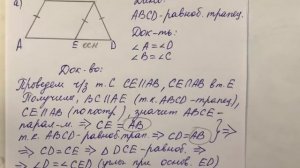 а)
Дано:
ABCD-равноб. трапец.
Док-ть:
∠A=∠D
∠B=∠C
A E осн D
Док-во:
Проведем ч/з т.C CE∥AB, CE∩AD в т.E
Получим, BC∥AE (т.к. ABCD-трапец),
CE∥AB (по постр), значит ABCE-
парал-м ⇒ CE=AB
т.к. ABCD-равноб.трап ⇒ CD=AB } ⇒
⇒ CD=CE ⇒ △DCE-равноб. ⇒
⇒ ∠D=∠CED (углы при основ. ED)